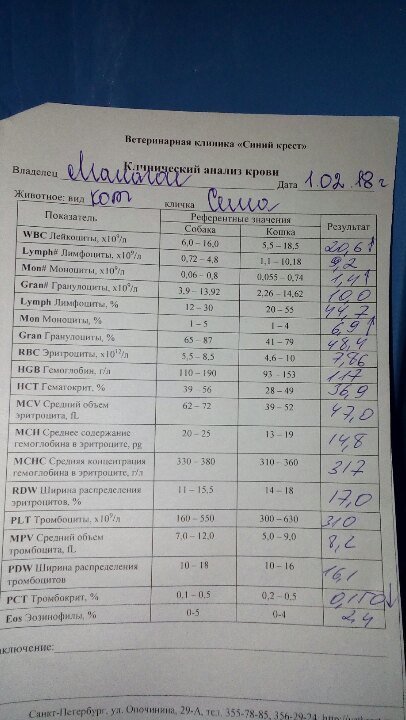 Ветеринарная клиника «Синий крест»
Клинический анализ крови
Владелец Дата 1.02.18 г
Животное: вид кот кличка Сеша
Показатель Референтные значения Результат
Собака Кошка
WBC Лейкоциты, х10⁹/л 6,0 – 16,0 5,5 – 18,5 20,6↑
Lymph# Лимфоциты, х10⁹/л 0,72 – 4,8 1,1 – 10,18 9,2
Mon# Моноциты, х10⁹/л 0,06 – 0,8 0,055 – 0,74 1,4↑
Gran# Гранулоциты, х10⁹/л 3,9 – 13,92 2,26 – 14,62 10,0
Lymph Лимфоциты, % 12 – 30 20 – 55 44,7
Mon Моноциты, % 1 – 5 1 – 4 6,9↑
Gran Гранулоциты, % 65 – 87 41 – 79 48,4
RBC Эритроциты, х10¹²/л 5,5 – 8,5 4,6 – 10 7,86
HGB Гемоглобин, г/л 110 – 190 93 – 153 117
HCT Гематокрит, % 39 – 56 28 – 49 36,9
MCV Средний объем эритроцита, fL 62 – 72 39 – 52 47,0
MCH Среднее содержание гемоглобина в эритроците, pg 20 – 25 13 – 19 14,8
MCHC Средняя концентрация гемоглобина в эритроците, г/л 330 – 380 310 – 360 317
RDW Ширина распределения эритроцитов, % 11 – 15,5 14 – 18 17,0
PLT Тромбоциты, х10⁹/л 160 – 550 300 – 630 310
MPV Средний объем тромбоцита, fL 7,0 – 12,0 5,0 – 9,0 8,2
PDW Ширина распределения тромбоцитов 10 – 18 10 – 16 16,1
PCT Тромбокрит, % 0,1 – 0,5 0,2 – 0,5 ↓
Eos Эозинофилы, % 0-5 0-4 2,4
аключение:
Санкт-Петербург, ул. Опочинина, 29-А, тел. 355-78-85, 356-29-24,